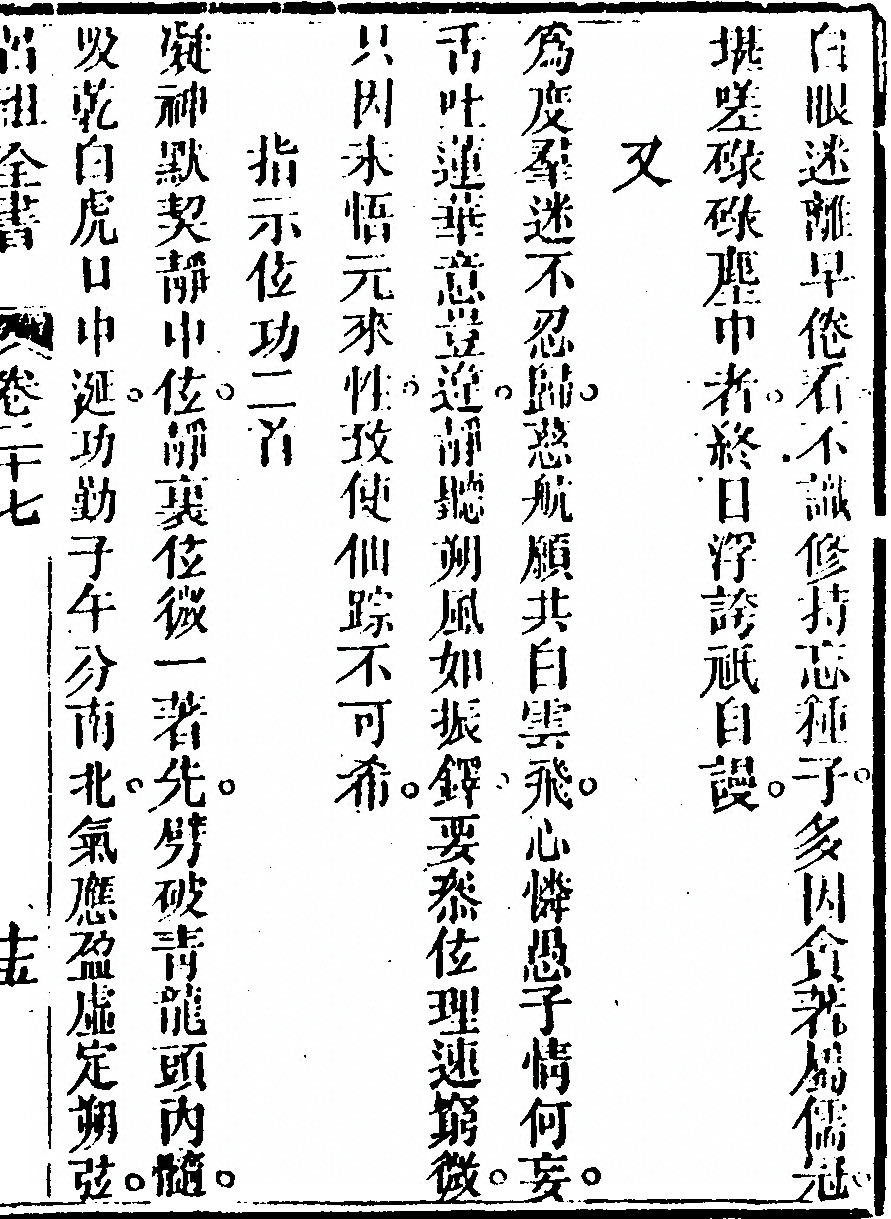 白眼迷離早倦看。不識修持忘種子。多因貪著屬儒冠。
堪嗟碌碌塵中者。終日浮誇祗自謾。
又
爲度羣迷不忍歸。慈航願共白雲飛。心憐愚子情何妄。
舌吐蓮華意豈違。靜聽朔風如振鐸。要叅位理速窮微。
只因未悟元來性。致使仙踪不可希。
指示位功二首
凝神默契靜中位。靜裏位微一著先。劈破青龍頭內髓。
吸乾白虎口中涎。功勤子午分南北。氣應盈虛定朔弦。
呂祖全書 卷二十七 十五